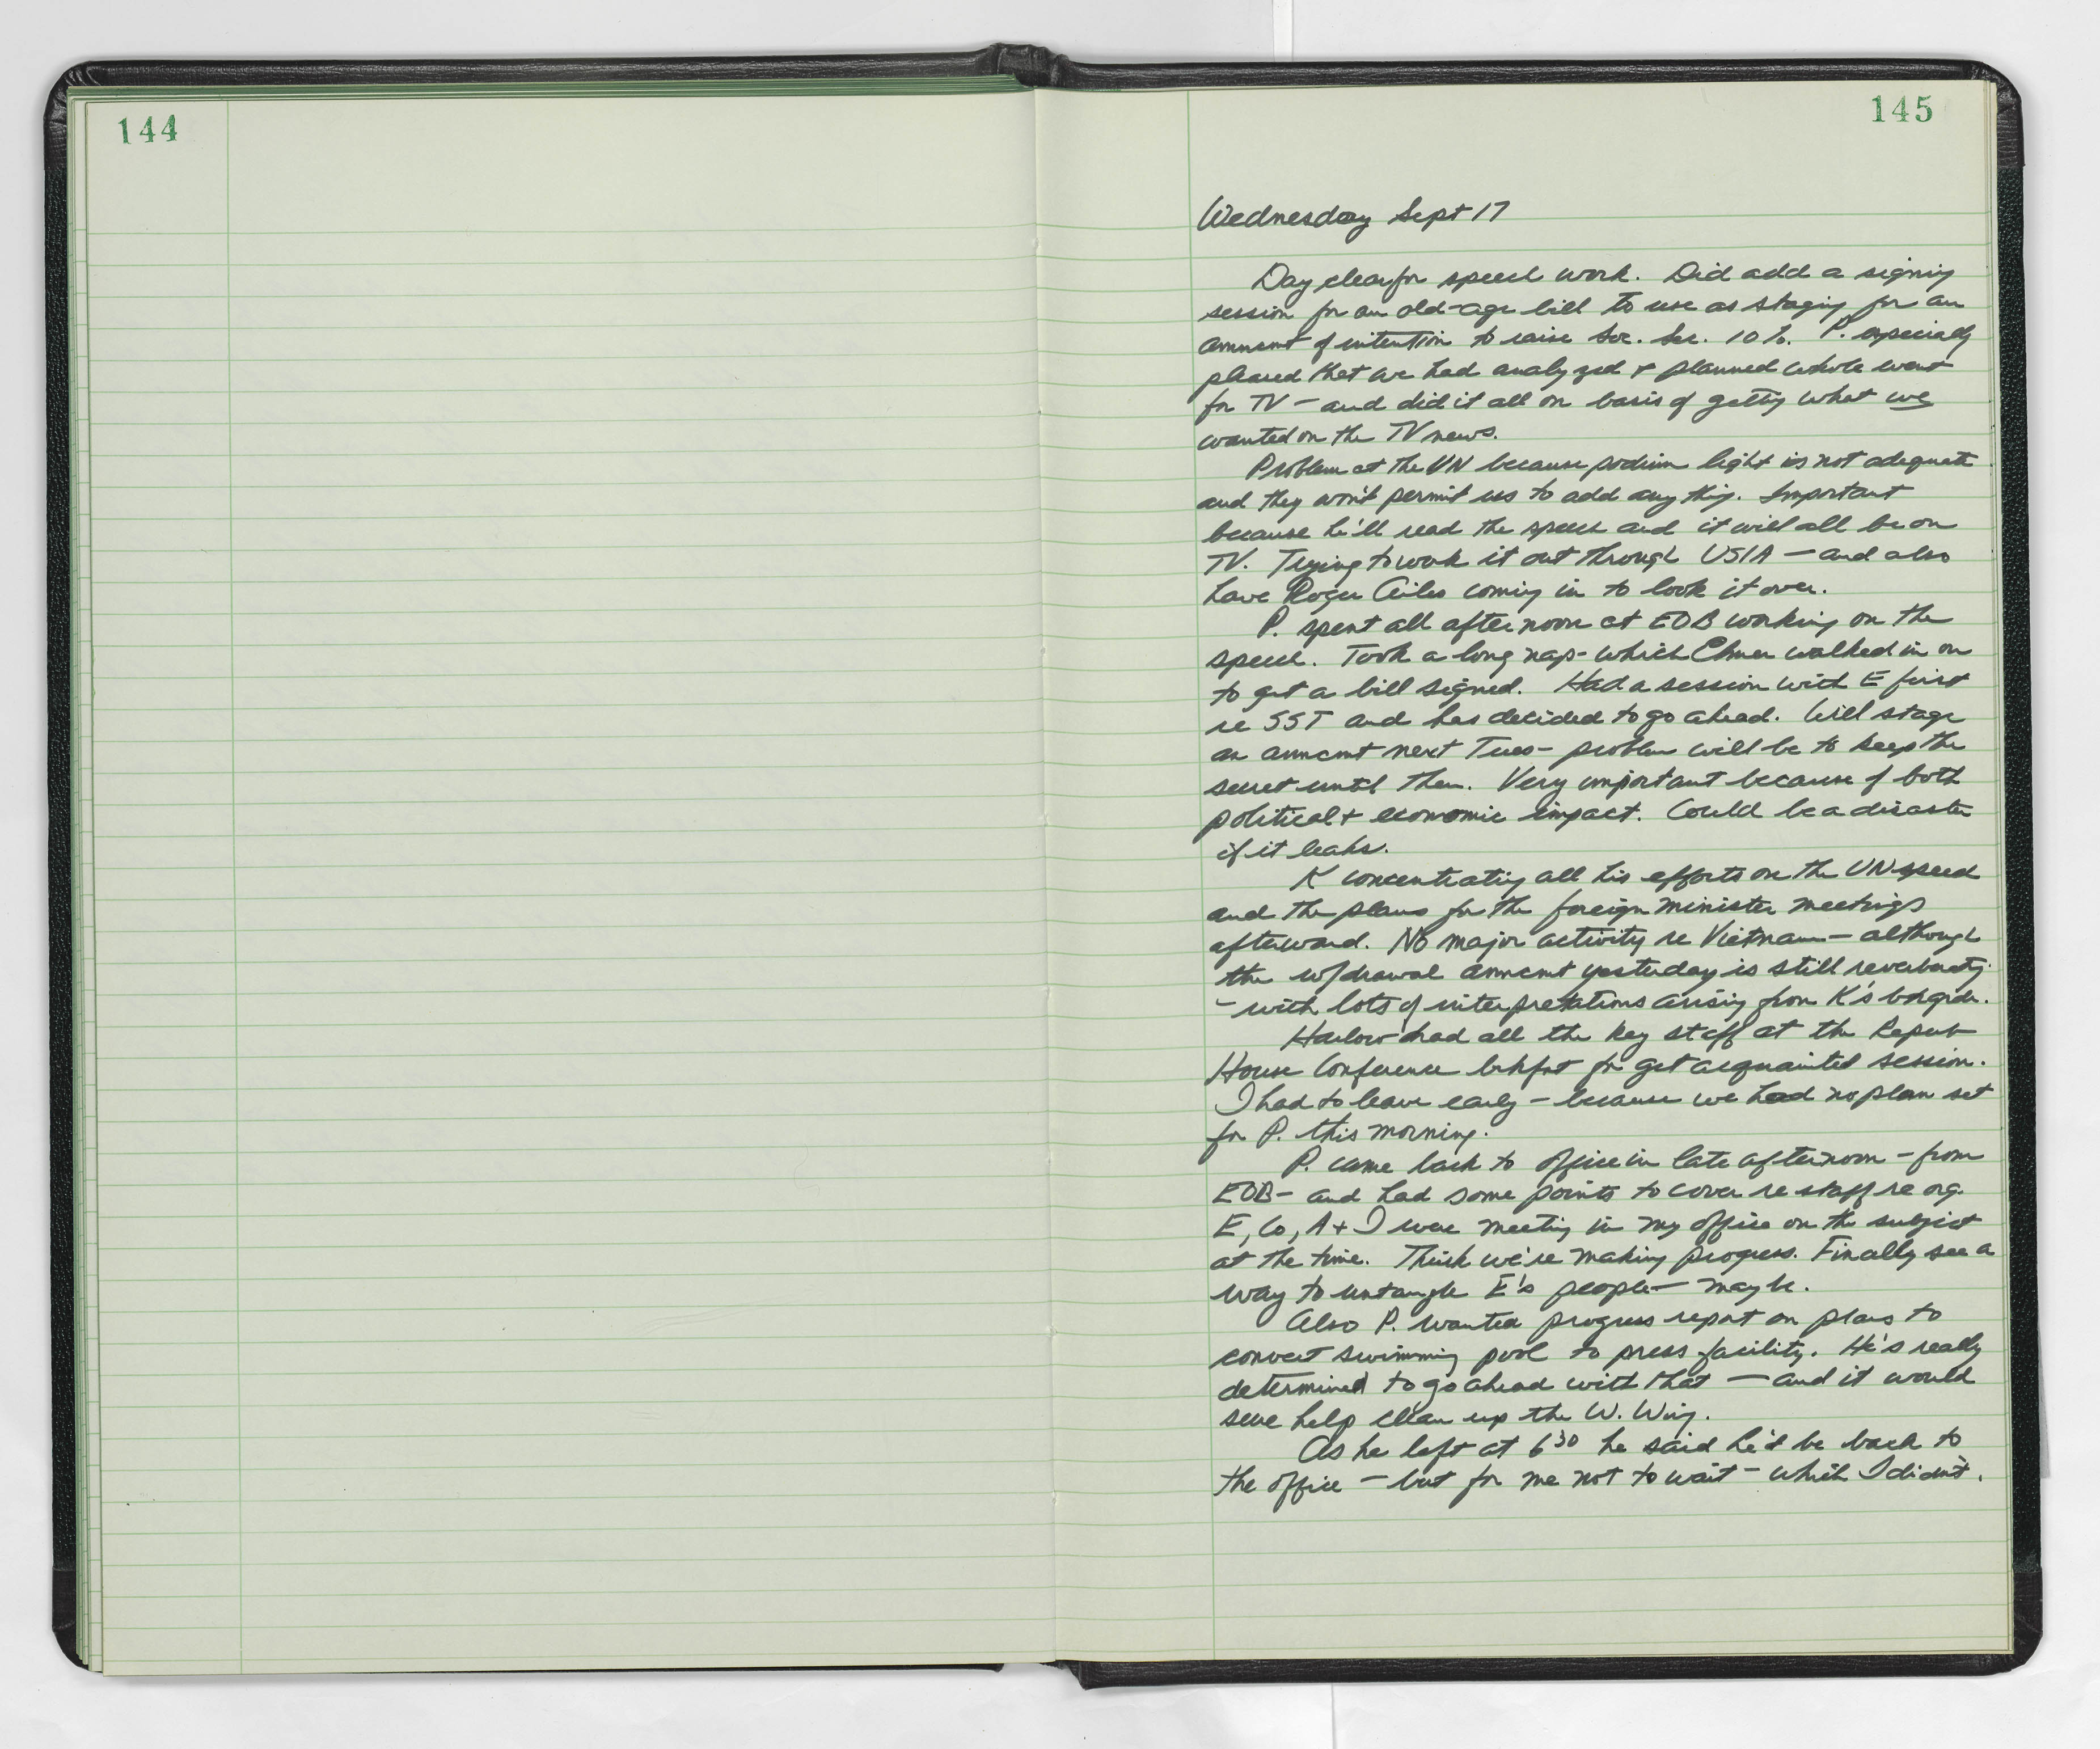 144
145
Wednesday Sept 17
Day clear for speech work. Did add a signing
session for an old-age bill to use as staging for an
anncmt of intention to raise Soc. Sec. 10%. P. especially
pleased that we had analyzed + planned whole event
for TV – and did it all on basis of getting what we
wanted on the TV news.
Problem at the UN because podium light is not adequate
and they won't permit us to add anything. Important
because he'll read the speech and it will all be on
TV. Trying to work it out through USIA – and also
have Roger Ailes coming in to look it over.
P. spent all afternoon at EOB working on the
speech. Took a long nap – which Elmer walked in on
to get a bill signed. Had a session with E first
re SST and has decided to go ahead. Will stage
an anncmt next Tues – problem will be to keep the
secret until then. Very important because of both
political + economic impact. Could be a disaster
if it leaks.
K concentrating all his efforts on the UN speech
and the plans for the foreign minister meetings
afterward. No major activity re Vietnam – although
the w/drawal anncmt yesterday is still reverberatg.
– with lots of interpretations arising from K's bkgrdr.
Harlow had all the key staff at the Repub
House Conference brkfst for get acquainted session.
I had to leave early – because we had no plan set
for P. this morning.
P. came back to office in late afternoon – from
EOB – and had some points to cover re staff re org.
E, Co, A + I were meeting in my office on the subject
at the time. Think we're making progress. Finally see a
way to untangle E's people – maybe.
Also P. wanted progress report on plans to
convert swimming pool to press facility. He's really
determined to go ahead with that – and it would
sure help clean up the W. Wing.
As he left at 6³⁰ he said he'd be back to
the office – but for me not to wait – which I didn't.